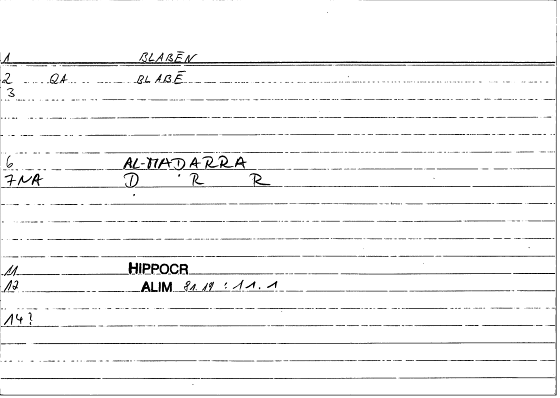 1 BLABĒN
2 QA BLABĒ
3
6 AL-MAḌARRA
7 NA Ḍ R R
11 HIPPOCR
12 ALIM 81.19 : 11.1
14?